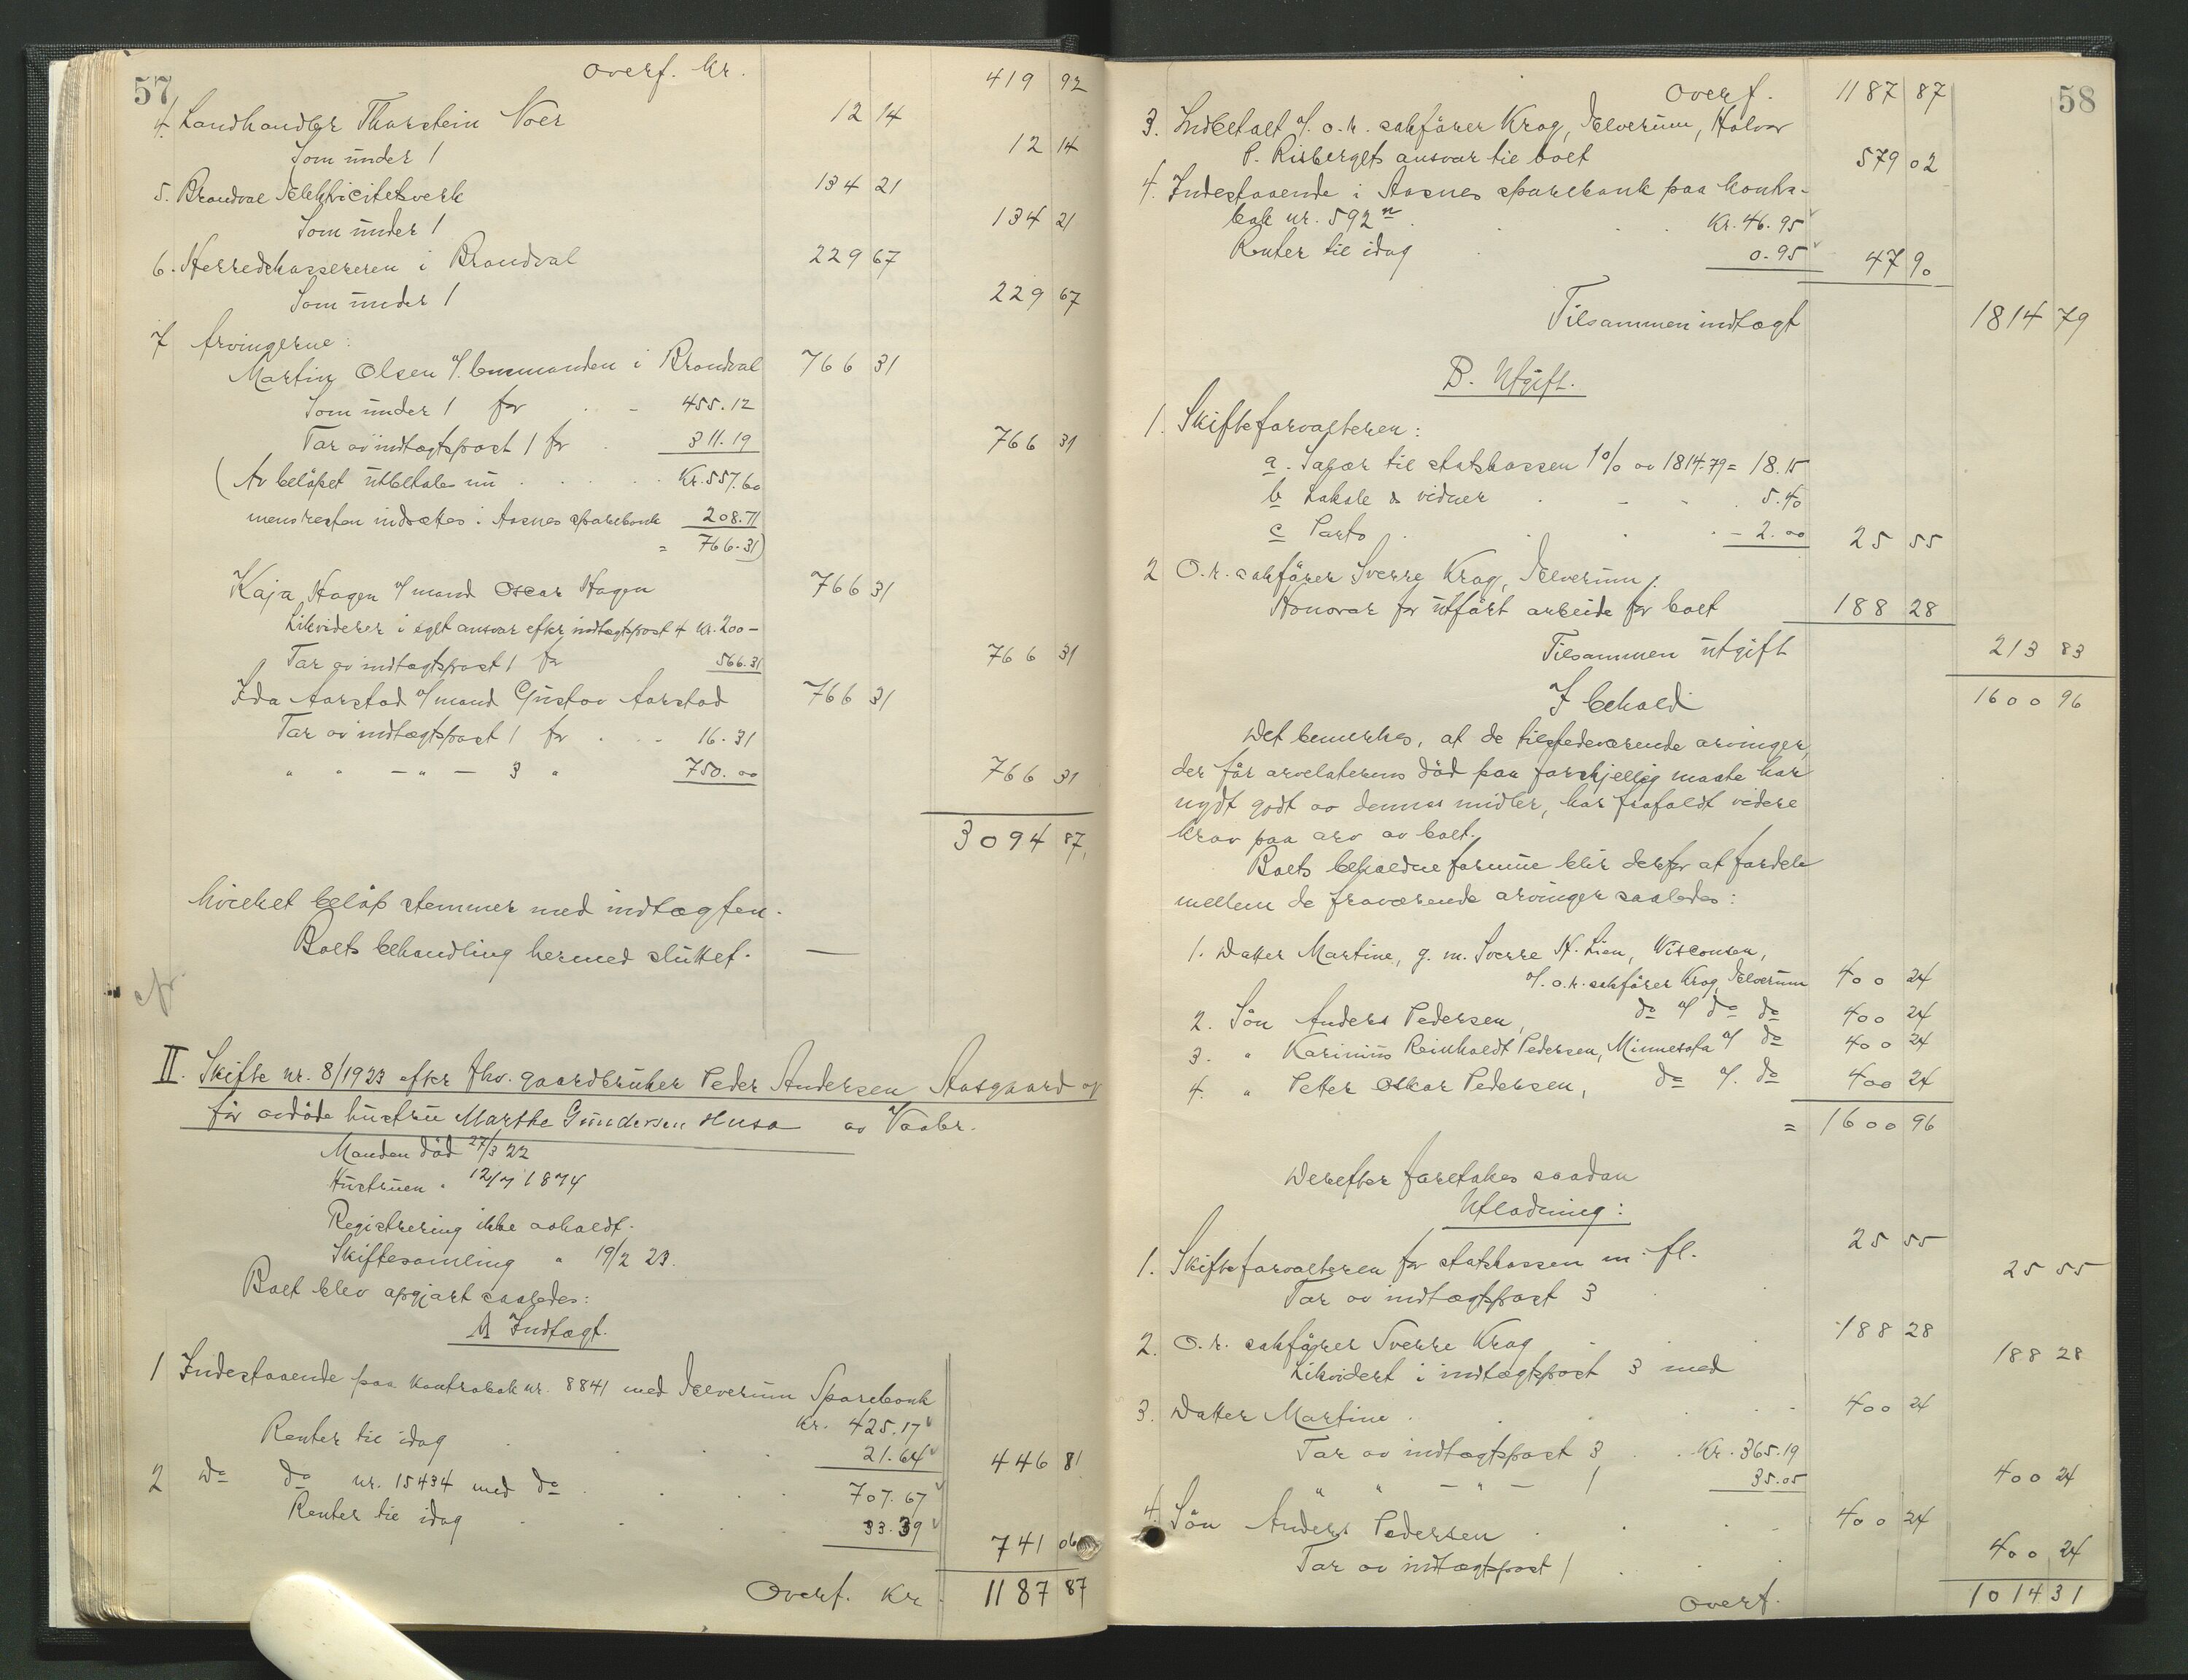 57
Overf. kr. 419 92
4. Landhandler Thorstein Noer 12 14
Som under 1 12 14
5. Brandval Elektricitetsverk 134 21
Som under 1 134 21
6. Herredskassereren i Brandval 229 67
Som under 1 229 67
7 Arvingerne:
Martin Olsen v/ lensmanden i Brandval 766 31
Som under 1 for 455.12
Tar av indtægtspost 1 for 311.19 766 31
(Av beløpet utbetales nu Kr. 557.60
mens resten indsættes i Aasnes sparebank 208.71
= 766.31)
Kaja Hagen v/ mand Oscar Hagen 766 31
Likviderer i eget ansvar efter indtægtspost 4 kr. 200 –
Tar av indtægtspost 1 for 566.31 766 31
Ida Aarstad v/ mand Gustav Aarstad 766 31
Tar av indtægtspost 1 for 16.31
" " – " – 3 " 750.00 766 31
3094 87
hvilket beløp stemmer med indtægten.
Boets behandling hermed sluttet. —
cfr.
II. Skifte nr. 8/1923 efter fhv. gaardbruker Peder Andersen Aasgaard og
før avdøde hustru Marthe Gundersen Husa av Vaaler.
Manden død 27/3 22
Hustruen " 12/7 1874
Registrering ikke avholdt.
Skiftesamling " 19/2 23.
Boet blev opgjort saaledes:
A Indtægt.
1 Indestaaende paa kontrabok nr. 8841 med Elverum Sparebank
kr. 425.17
Renter til idag 21.64 446 81
2 Do do nr. 15434 med do 707.67
Renter til idag 33.39 741 06
Overf. Kr. 1187 87
58
Overf. 1187 87
3. Indbetalt v/ o.r. sakfører Krog, Elverum, Halvor
P. Risbergets ansvar til boet 579 02
4. Indestaaende i Aasnes sparebank paa kontra-
bok nr. 592 n Kr. 46.95
Renter til idag 0.95 47 90
Tilsammen indtægt 1814 79
B. Utgift.
1. Skifteforvalteren:
a. Sagør til statskassen 1% av 1814.79 = 18.15
b Lokale & vidner 5.40
c Porto – 2.00 25 55
2 O.r. sakfører Sverre Krog, Elverum,
Honorar for utført arbeide for boet 188 28
Tilsammen utgift 213 83
I behold 1600 96
Det bemerkes, at de tilstedeværende arvinger,
der før arvelaterens død paa forskjellig maate har
nydt godt av dennes midler, har frafaldt videre
krav paa arv av boet.
Boets beholdne formue blir derfor at fordele
mellem de fraværende arvinger saaledes:
1. Datter Martine, g. m. Sverre H. Lien, Wisconsen,
v/ o.r. sakfører Krog, Elverum 400 24
2. Søn Anders Pedersen, do v/ do do 400 24
3. " Karinius Reinholdt Pedersen, Minnesota v/ do 400 24
4. " Petter Oskar Pedersen, do v/ do 400 24
= 1600 96
Derefter foretakes saadan
Utlodning:
1. Skifteforvalteren for statskassen m. fl. 25 55
Tar av indtægtspost 3 25 55
2. O.r. sakfører Sverre Krog 188 28
Likvidert i indtægtspost 3 med 188 28
3. Datter Martine 400 24
Tar av indtægtspost 3 Kr. 365.19
" " – " – 1 35.05 400 24
4. Søn Anders Pedersen 400 24
Tar av indtægtspost 1 400 24
Overf. 1014 31